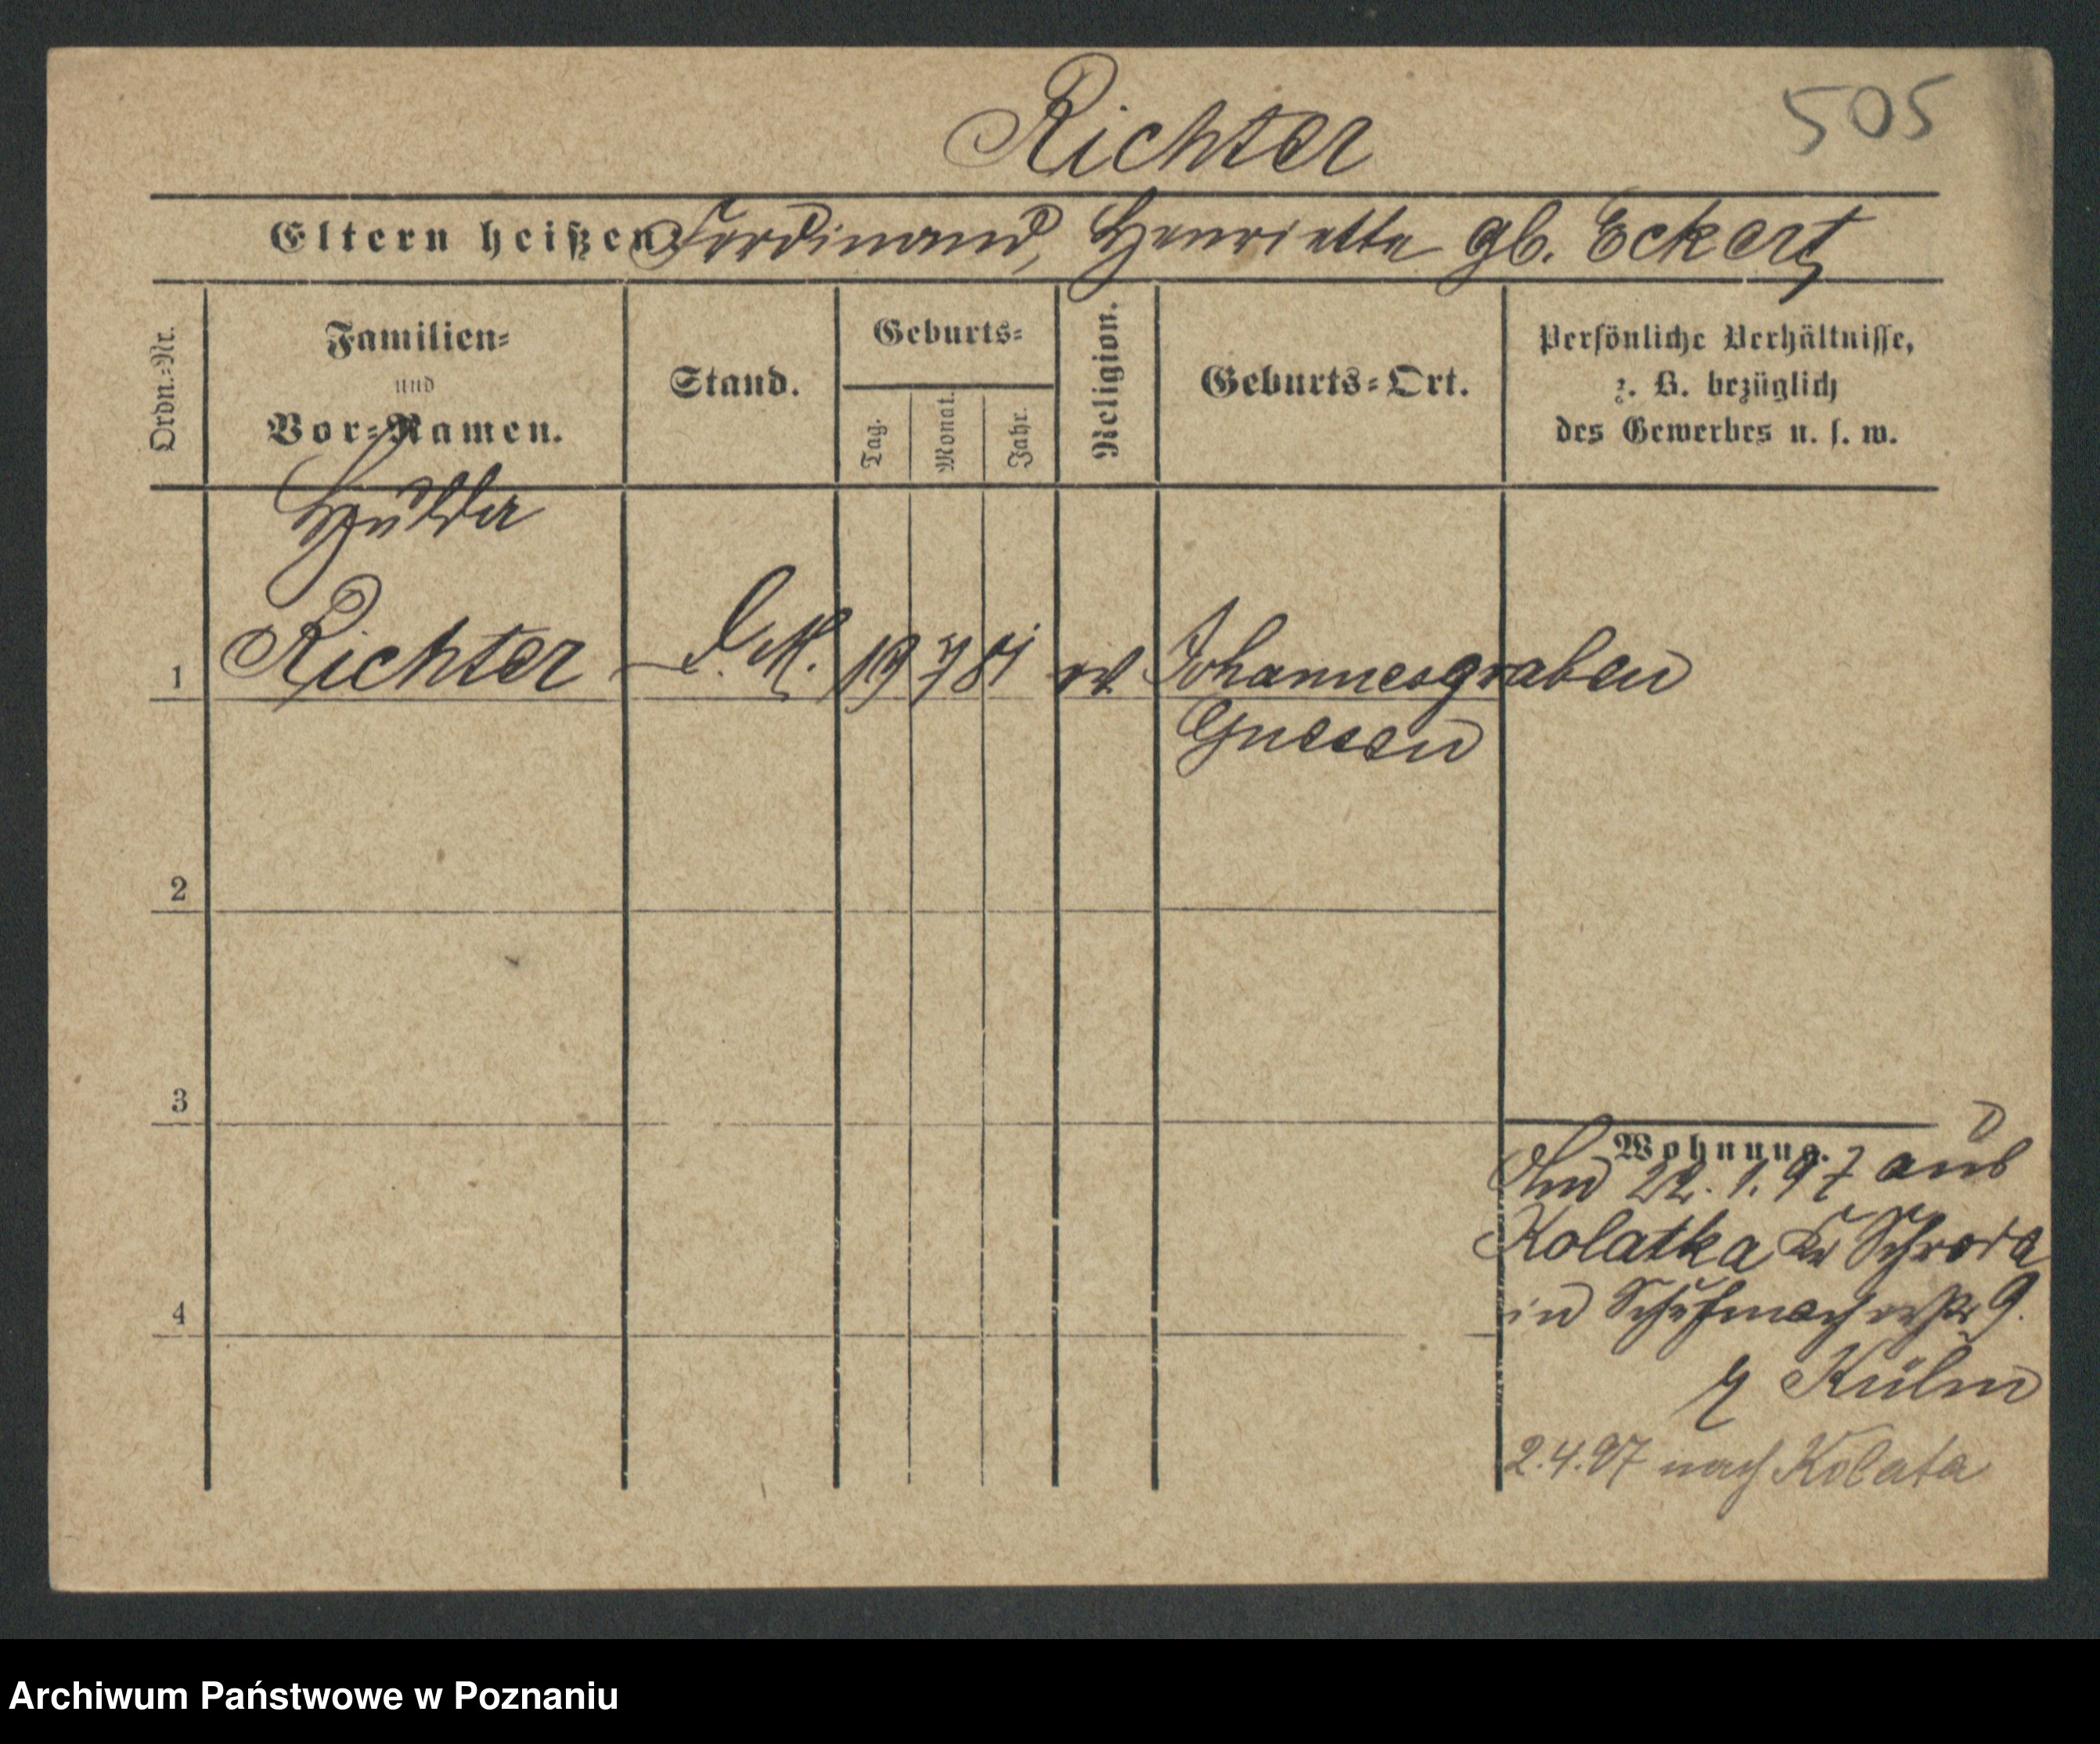 505
Richter
Eltern heißen Ferdinand, Henriette gb. Eckert
Ordn.-Nr.
Familien-
und
Vor-Namen.
Stand.
Geburts-
Tag.
Monat.
Jahr.
Religion.
Geburts-Ort.
Persönliche Verhältnisse,
z. B. bezüglich
des Gewerbes u. s. w.
Hulda
1 Richter D. M. 19 7 81 ev. Johannesgraben
Gnesen
2
3
4
Wohnung.
22. 1. 97 aus
Kolatka Kr Schroda
in Schuhmacherstr 9.
Külm
2.4.97 nach Kolata
Archiwum Państwowe w Poznaniu